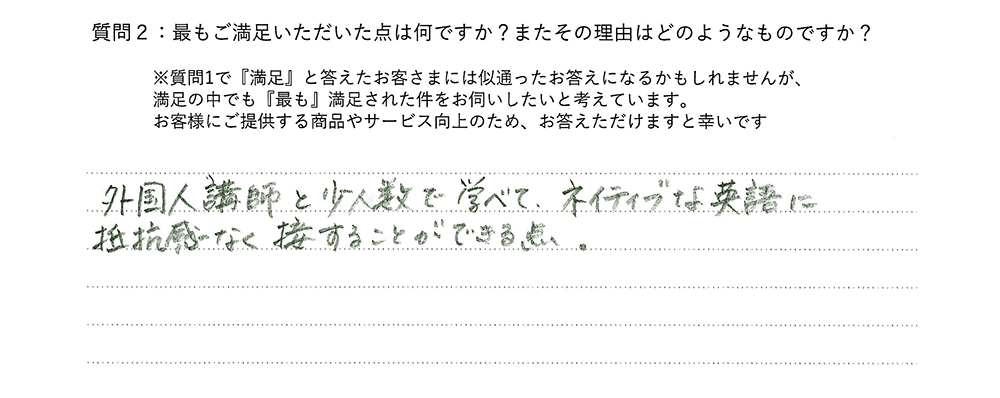 質問２：最もご満足いただいた点は何ですか？またその理由はどのようなものですか？
※質問1で『満足』と答えたお客さまには似通ったお答えになるかもしれませんが、
満足の中でも『最も』満足された件をお伺いしたいと考えています。
お客様にご提供する商品やサービス向上のため、お答えただけますと幸いです
外国人講師と少人数で学べて、ネイティブな英語に
抵抗感なく接することができる点。